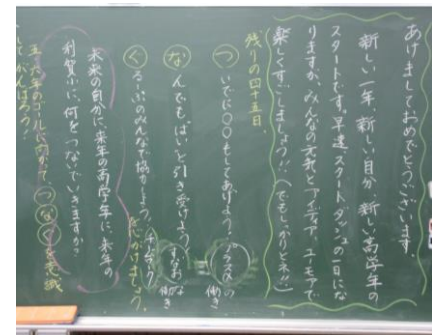 あけましておめでとうございます。
新しい一年、新しい自分、新しい高学年の
スタートです。早速、スタートダッシュの一日にな
りますが、みんなの元気とアイディア、ユーモアで
楽しくすごしましょう!!(でも、しっかりとネ♡)
残りの四十五日、
つ いでに〇〇もしてあげよう。プラスの働き
な んでも「はい」と引き受けよう すなおな働き
く るーぷのみんなで協力しよう。チームワーク
を心がけましょう。
未来の自分に、来年の高学年に、来年の
利賀小に、何をつないでいきますか?
五・六年のゴールに向かって つなぐ を意識
してがんばろう!